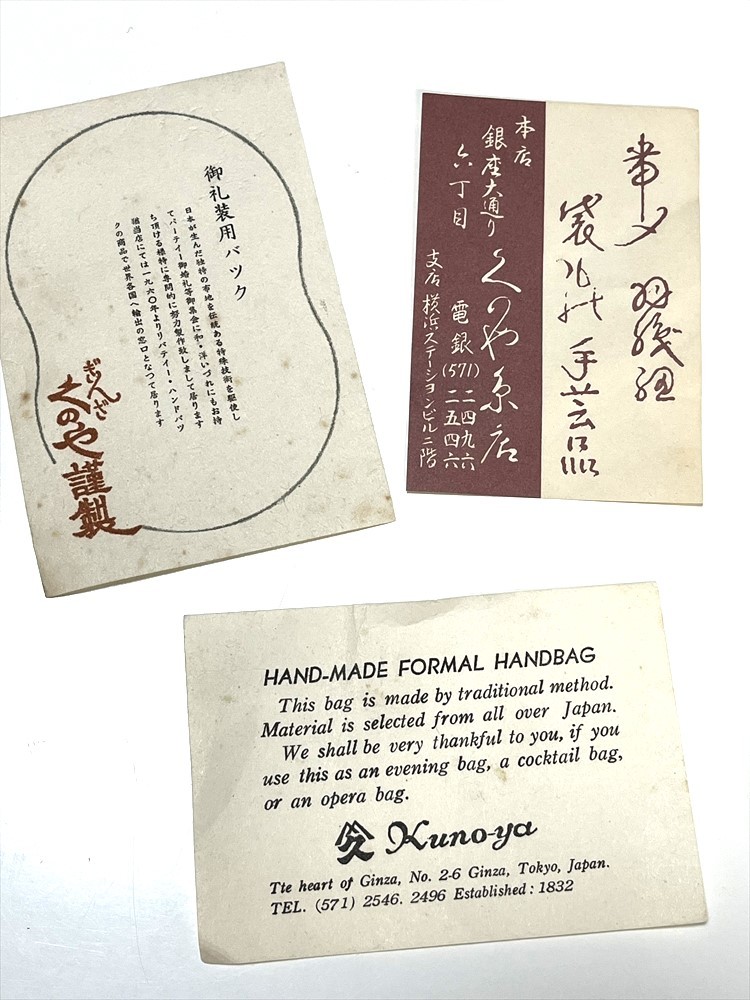 御礼装用バツク
日本が生んだ独特の布地を伝統ある特殊技術を駆使し
てパーテイー御婚礼等御集会に和・洋いづれにもお持
ち頂ける様特に専門的に努力製作致しまして居ります
猶当店にては一九六〇年よりリバテイー・ハンドバツ
クの商品で世界各国へ輸出の窓口となつて居ります
ぎんざ
くのや謹製
帯〆 羽織紐
袋物 手芸品
本店
銀座大通り
六丁目
くのや糸店
電銀(571)二四九六
二五四六
支店 横浜ステーションビル二階
HAND-MADE FORMAL HANDBAG
This bag is made by traditional method.
Material is selected from all over Japan.
We shall be very thankful to you, if you
use this as an evening bag, a cocktail bag,
or an opera bag.
Kuno-ya
Tte heart of Ginza, No. 2-6 Ginza, Tokyo, Japan.
TEL. (571) 2546. 2496 Established: 1832